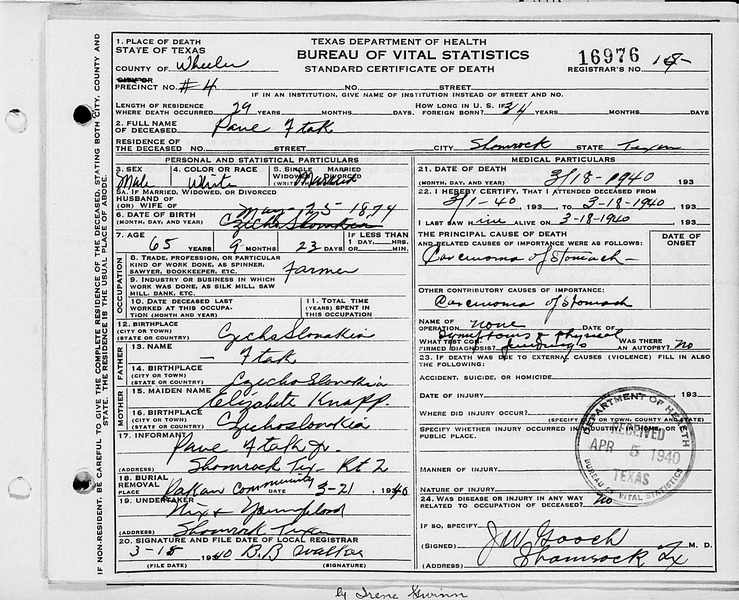 1. PLACE OF DEATH
STATE OF TEXAS
COUNTY OF Wheeler
CITY OR
PRECINCT NO. #4 NO. STREET
TEXAS DEPARTMENT OF HEALTH
BUREAU OF VITAL STATISTICS
STANDARD CERTIFICATE OF DEATH
16976
REGISTRAR'S NO. 18-
IF IN AN INSTITUTION, GIVE NAME OF INSTITUTION INSTEAD OF STREET AND NO.
LENGTH OF RESIDENCE
WHERE DEATH OCCURRED 29 YEARS MONTHS DAYS. HOW LONG IN U. S. IF FOREIGN BORN? 34 YEARS MONTHS DAYS
2. FULL NAME
OF DECEASED Pave Ftak
RESIDENCE OF
THE DECEASED NO. STREET CITY Shamrock STATE Texas
PERSONAL AND STATISTICAL PARTICULARS
3. SEX
Male
4. COLOR OR RACE
White
5. SINGLE MARRIED
WIDOWED
(WRITE Married
5A. IF MARRIED, WIDOWED, OR DIVORCED
HUSBAND OF
(OR) WIFE OF
6. DATE OF BIRTH
(MONTH, DAY, AND YEAR) May 25-1874
Czecho Slovakia
7. AGE
65 YEARS 9 MONTHS 23 DAYS
IF LESS THAN
1 DAY, HRS.
MIN.
OCCUPATION
8. TRADE, PROFESSION, OR PARTICULAR
KIND OF WORK DONE, AS SPINNER,
SAWYER, BOOKKEEPER, ETC. Farmer
9. INDUSTRY OR BUSINESS IN WHICH
WORK WAS DONE, AS SILK MILL, SAW
MILL, BANK, ETC.
10. DATE DECEASED LAST
WORKED AT THIS OCCUPA-
TION (MONTH AND YEAR)
11. TOTAL TIME
(YEARS) SPENT IN
THIS OCCUPATION
12. BIRTHPLACE
(CITY OR TOWN)
(STATE OR COUNTRY) Czecho Slovakia
FATHER
13. NAME
— Ftak
14. BIRTHPLACE
(CITY OR TOWN)
(STATE OR COUNTRY) Czecho Slovakia
MOTHER
15. MAIDEN NAME
Elizabete Knapp.
16. BIRTHPLACE
(CITY OR TOWN)
(STATE OR COUNTRY) Czechoslovakia
17. INFORMANT
Pave Ftak Jr.
(ADDRESS) Shamrock Tex Rt 2
18. BURIAL
REMOVAL
PLACE Pakan Community DATE 3-21, 1940
19. UNDERTAKER
Nix & Youngblood
(ADDRESS) Shamrock Texas
20. SIGNATURE AND FILE DATE OF LOCAL REGISTRAR
3-18 1940 B.B. Walker
(FILE DATE) (SIGNATURE)
MEDICAL PARTICULARS
21. DATE OF DEATH
(MONTH, DAY, AND YEAR) 3/18-1940 193
22. I HEREBY CERTIFY, THAT I ATTENDED DECEASED FROM
3/1-40 193 TO 3-18-1940 193
I LAST SAW H ALIVE ON 3-18-1940 193
THE PRINCIPAL CAUSE OF DEATH
AND RELATED CAUSES OF IMPORTANCE WERE AS FOLLOWS:
DATE OF
ONSET
Carcinoma of Stomach —
OTHER CONTRIBUTORY CAUSES OF IMPORTANCE:
Carcinoma of Stomach
NAME OF
OPERATION none DATE OF
Symptoms & physical
WHAT TEST CON-
FIRMED DIAGNOSIS? findings WAS THERE
AN AUTOPSY? No
23. IF DEATH WAS DUE TO EXTERNAL CAUSES (VIOLENCE) FILL IN ALSO
THE FOLLOWING:
ACCIDENT, SUICIDE, OR HOMICIDE
DATE OF INJURY 193
WHERE DID INJURY OCCUR?
(SPECIFY CITY OR TOWN, COUNTY AND STATE)
SPECIFY WHETHER INJURY OCCURRED IN INDUSTRY, IN HOME, OR
PUBLIC PLACE.
MANNER OF INJURY
NATURE OF INJURY
24. WAS DISEASE OR INJURY IN ANY WAY
RELATED TO OCCUPATION OF DECEASED? No
IF SO, SPECIFY
(SIGNED) J W Gooch M. D.
(ADDRESS) Shamrock Tx
DEPARTMENT OF HEALTH
RECEIVED
APR 5 1940
TEXAS
BUREAU OF VITAL STATISTICS
IF NON-RESIDENT, BE CAREFUL TO GIVE THE COMPLETE RESIDENCE OF THE DECEASED, STATING BOTH CITY, COUNTY AND
STATE. THE RESIDENCE IS THE USUAL PLACE OF ABODE.
by Irene Gwinn